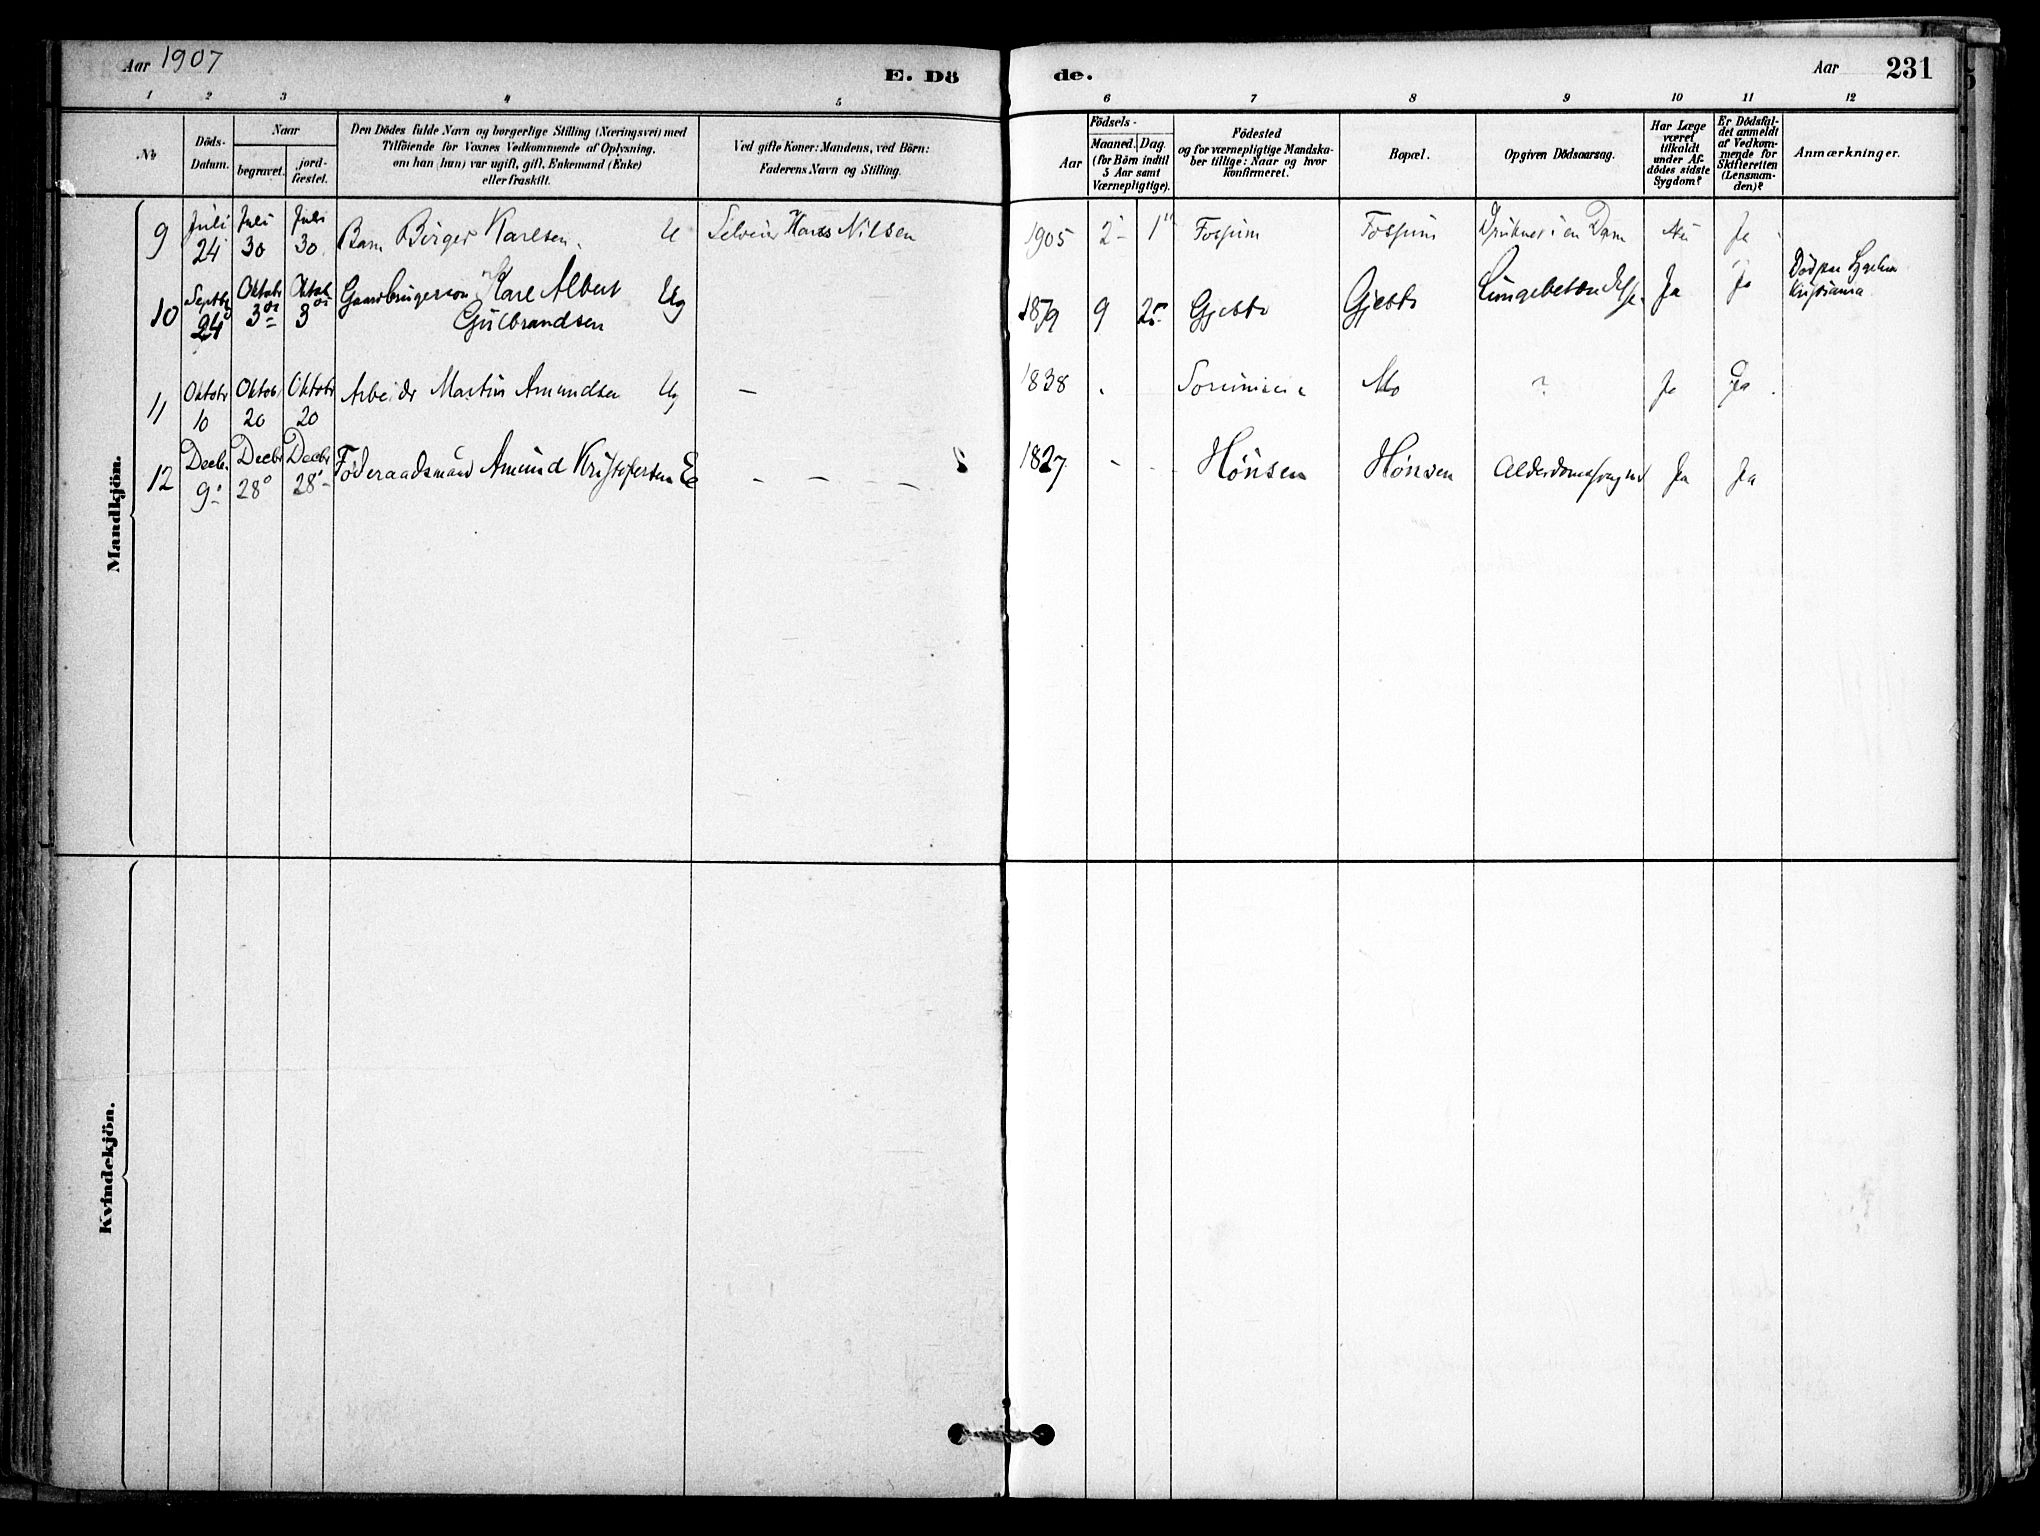 Aar 1907
E. Dö
de.
Aar
231
1 2 3 4 5 6 7 8 9 10 11 12
No
Döds-
Datum.
Naar
begravet.
jord-
fæstet.
Den Dödes fulde Navn og borgerlige Stilling (Næringsvei) med
Tilföiende for Voxnes Vedkommende af Oplysning,
om han (hun) var ugift, gift, Enkemand (Enke)
eller fraskilt.
Ved gifte Koner: Mandens, ved Börn:
Faderens Navn og Stilling.
Födsels-
Aar
Maaned. Dag.
(for Börn indtil
5 Aar samt
Værnepligtige).
Födested
og for værnepligtige Mandska-
ber tillige: Naar og hvor
konfirmeret.
Bopæl.
Opgiven Dödsaarsag.
Har Læge
været
tilkaldt
under Af-
dödes sidste
Sygdom?
Er Dödsfal-
det anmeldt
af Vedkom-
mende for
Skifteretten
(Lensman-
den)?
Anmærkninger.
Mandkjön.
9 Juli 24 Juli 30 Juli 30. Barn Birger Karlsen. U Hans Nilsen 1905 2 1 Fossum Fossum i en Dam Nei Ja
10 Septbr 24 Oktobr 3 Oktob 3 Gaardbrugersøn Karl Albert Ug
Gulbrandsen
1879 9 Ja Ja
Kristiania
11 Oktobr 10 Oktob 20 Oktobr 20 Arbeider Martin Amundsen Ug — 1838 Mo ? Ja Ja
12 Decbr. 9 Decbr 28 Decbr 28 Föderaadsmand Amund Kristofersen E — — — — 1827 - - Hönsen Hönsen Ja Ja
Kvindekjön.